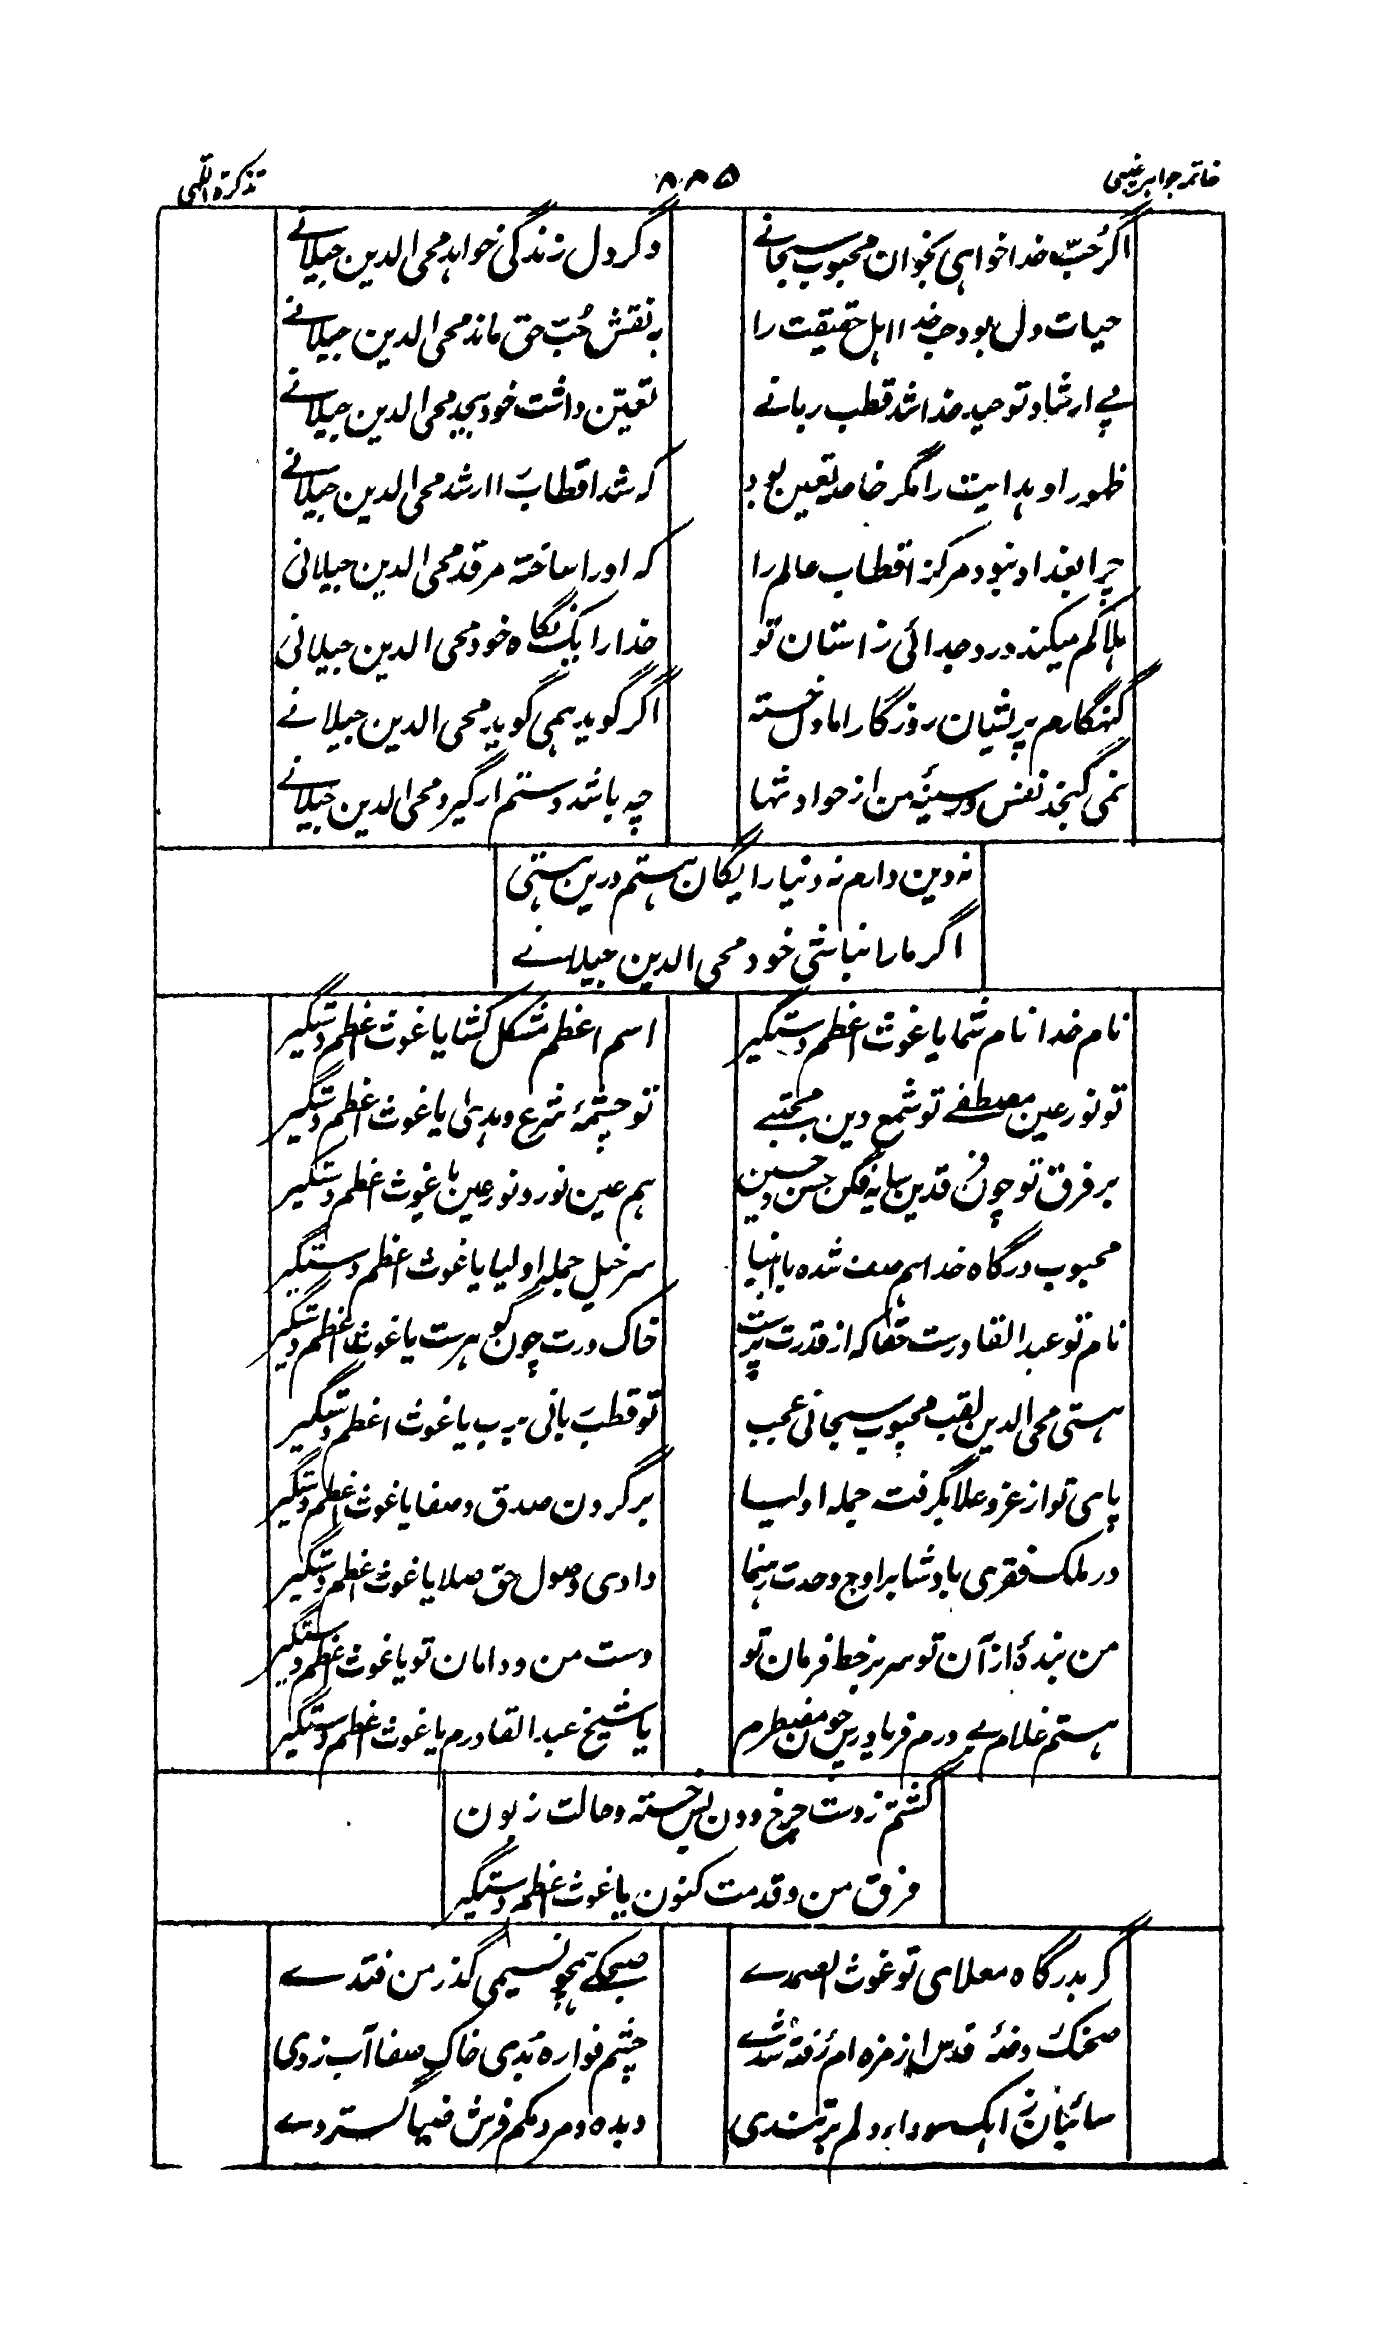 خاتمہ جواہر غیبی
۸۸۵
تذکرۃ اللّٰہی
اگر حُبّ خدا خواہی بخوان محبوب سبحانے
دگر دل زندگی خواہد محی الدین جیلانے
حیات دل بود حب خدا اہل حقیقت را
بہ نقش حُبّ حق ماند محی الدین جیلانے
پے ارشاد توحید خدا شد قطب ربانے
تعیّن داشت خود بیحد محی الدین جیلانے
ظہور او ہدایت را مگر خاصہ تعین بود
کہ شد اقطاب را ارشد محی الدین جیلانے
چرا بغداد نبود مرکز اقطاب عالم را
کہ او را ساختہ مرقد محی الدین جیلانی
ہلاکم میکند درد جدائی ز استان تو
خدا را یک نگاہ خود محی الدین جیلانی
گنہگارم پریشان روزگارم اما دل خستہ
اگر گوید ہمی گوید محی الدین جیلانے
نمی گنجد نفس در سینۂ من از حوادثہا
چہ باشد دستم ار گیرد محی الدین جیلانے
نہ دین دارم نہ دنیا رایگان ہستم درین ہستی
اگر ما را نباشی خود محی الدین جیلانے
نام خدا نام شما یا غوث اعظم دستگیر
اسم اعظم مشکل کشا یا غوث اعظم دستگیر
تو نور عین مصطفے تو شمع دین مجتبے
تو چشمۂ شرع و ہدیٰ یا غوث اعظم دستگیر
بر فرق تو چون فرقدین سایہ فکن حسن و حسین
ہم عین نور و نور عین یا غوث اعظم دستگیر
محبوب درگاہ خدا ہم صف شدہ با انبیا
سرخیل جملہ اولیا یا غوث اعظم دستگیر
نام تو عبد القادرست حقا کہ از قدرت پرست
خاک درت چون گوہرست یا غوث اعظم دستگیر
ہستی محی الدین لقب محبوب سبحانی عجب
تو قطب ربانی یا غوث اعظم دستگیر
پای تو از عز و علا بگرفت جملہ اولیا
بر گردن صدق و صفا یا غوث اعظم دستگیر
در ملک فقری بادشا بر اوج وحدت رہنما
دادی وصول حق صلا یا غوث اعظم دستگیر
من بندۂ از آن تو سر بر خط فرمان تو
دست من و دامان تو یا غوث اعظم دستگیر
ہستم غلام بے درم فریادرس چون مضطرم
یا شیخ عبد القادرم یا غوث اعظم دستگیر
گشتم ز دست چرخ دون بس خستہ و حالت زبون
فرق من و قدمت کنون یا غوث اعظم دستگیر
گر بدرگاہ معلای تو غوث الصمدے
صبحکے ہمچو نسیمی گذر من فتدے
صحنک روضۂ قدس از مژہ ام رُفتہ شدے
چشم فوارہ بُدی خاک صفا آب زدی
سائبان ز سودای دلم بربندی
دیدہ و مردمکم فرش ضیا گستردے